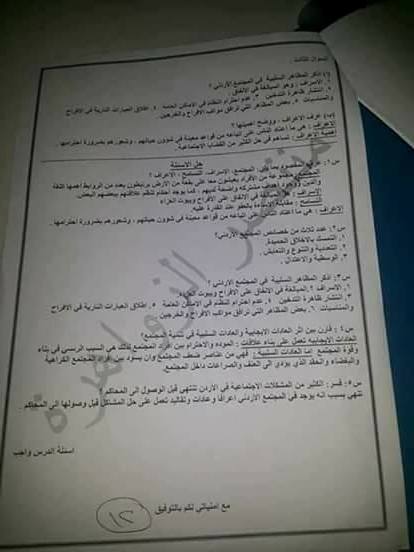 السؤال الثالث :
أ) اذكر المظاهر السلبية في المجتمع الأردني ؟
١. الأسراف : وهو المبالغة في الإنفاق .
٢. انتشار ظاهرة التدخين ٣. عدم احترام النظام في الأماكن العامة ٤. اطلاق العيارات النارية في الأفراح
والمناسبات ٥. بعض المظاهر التي ترافق مواكب الأفراح والخرجين.
ب) عرف الأعراف . ووضح اهميتها ؟
الأعراف : هي ما اعتاد الناس على اتباعه من قواعد معينة في شؤون حياتهم ، وشعورهم بضرورة احترامها .
اهمية الأعراف : تساهم في حل الكثير من القضايا الاجتماعية.
حل الاسئلة
س١: عرف المقصود بما يلي: المجتمع، الإسراف، التسامح ، الأعراف ؟
المجتمع مجموعة من الأفراد يعيشون معا على بقعة من الأرض يرتبطون بعدد من الروابط اهمها اللغة
والدين ووجود أهداف مشتركه واضحة لديهم ، كما يوجد أحكام تنظم علاقاتهم ببعضهم البعض.
الإسراف : هو المبالغة في الإنفاق على الأفراح وبيوت العزاء
التسامح : مقابلة الإساءة بالعفو عند القدرة عليه
الأعراف : هي ما اعتاد الناس على اتباعه من قواعد معينة في شؤون حياتهم ، وشعورهم بضرورة احترامها.
س٢: عدد ثلاث من خصائص المجتمع الأردني؟
١. التمسك بالأخلاق الحميدة.
٢. التعددية والتنوع والتعايش.
٣. الوسطية والاعتدال .
س٣: أذكر المظاهر السلبية في المجتمع الأردني ؟
١. الإسراف ٢. المبالغة في الإنفاق على الأفراح وبيوت العزاء
٣. انتشار ظاهرة التدخين ٤. عدم احترام للنظام في الأماكن العامة ٥. اطلاق العيارات النارية في الأفراح
والمناسبات ٦. بعض المظاهر التي ترافق مواكب الأفراح والخرجين.
س٤ : قارن بين اثر العادات الايجابية والعادات السلبية في تنمية المجتمع؟
العادات الايجابية تعمل على بناء علاقات : الموده والاحترام بين افراد المجتمع لذلك هي السبب الرئيسي في بناء
وقوة المجتمع اما العادات السلبية : فهي من عناصر ضعف المجتمع وان يسود بين افراد المجتمع الكراهية
والبغضاء والحقد الذي يؤدي الى العنف والصراعات داخل المجتمع.
س٥: فسر: الكثير من المشكلات الاجتماعية في الاردن تنتهي قبل الوصول الى المحاكم ؟
تنتهي بسبب انه يوجد في المجتمع الأردني اعرافا وعادات وتقاليد تعمل على حل المشاكل قبل وصولها الى المحاكم .
اسئلة الدرس واجب
مع امنياتي لكم بالتوفيق